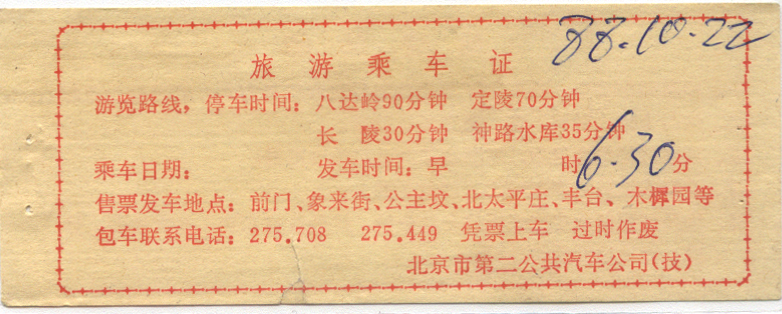 88.10.22
旅游乘车证
游览路线，停车时间：八达岭90分钟 定陵70分钟
长 陵30分钟 神路水库35分钟
乘车日期： 发车时间：早 时6.30分
售票发车地点：前门、象来街、公主坟、北太平庄、丰台、木樨园等
包车联系电话：275.708 275.449 凭票上车 过时作废
北京市第二公共汽车公司(技)